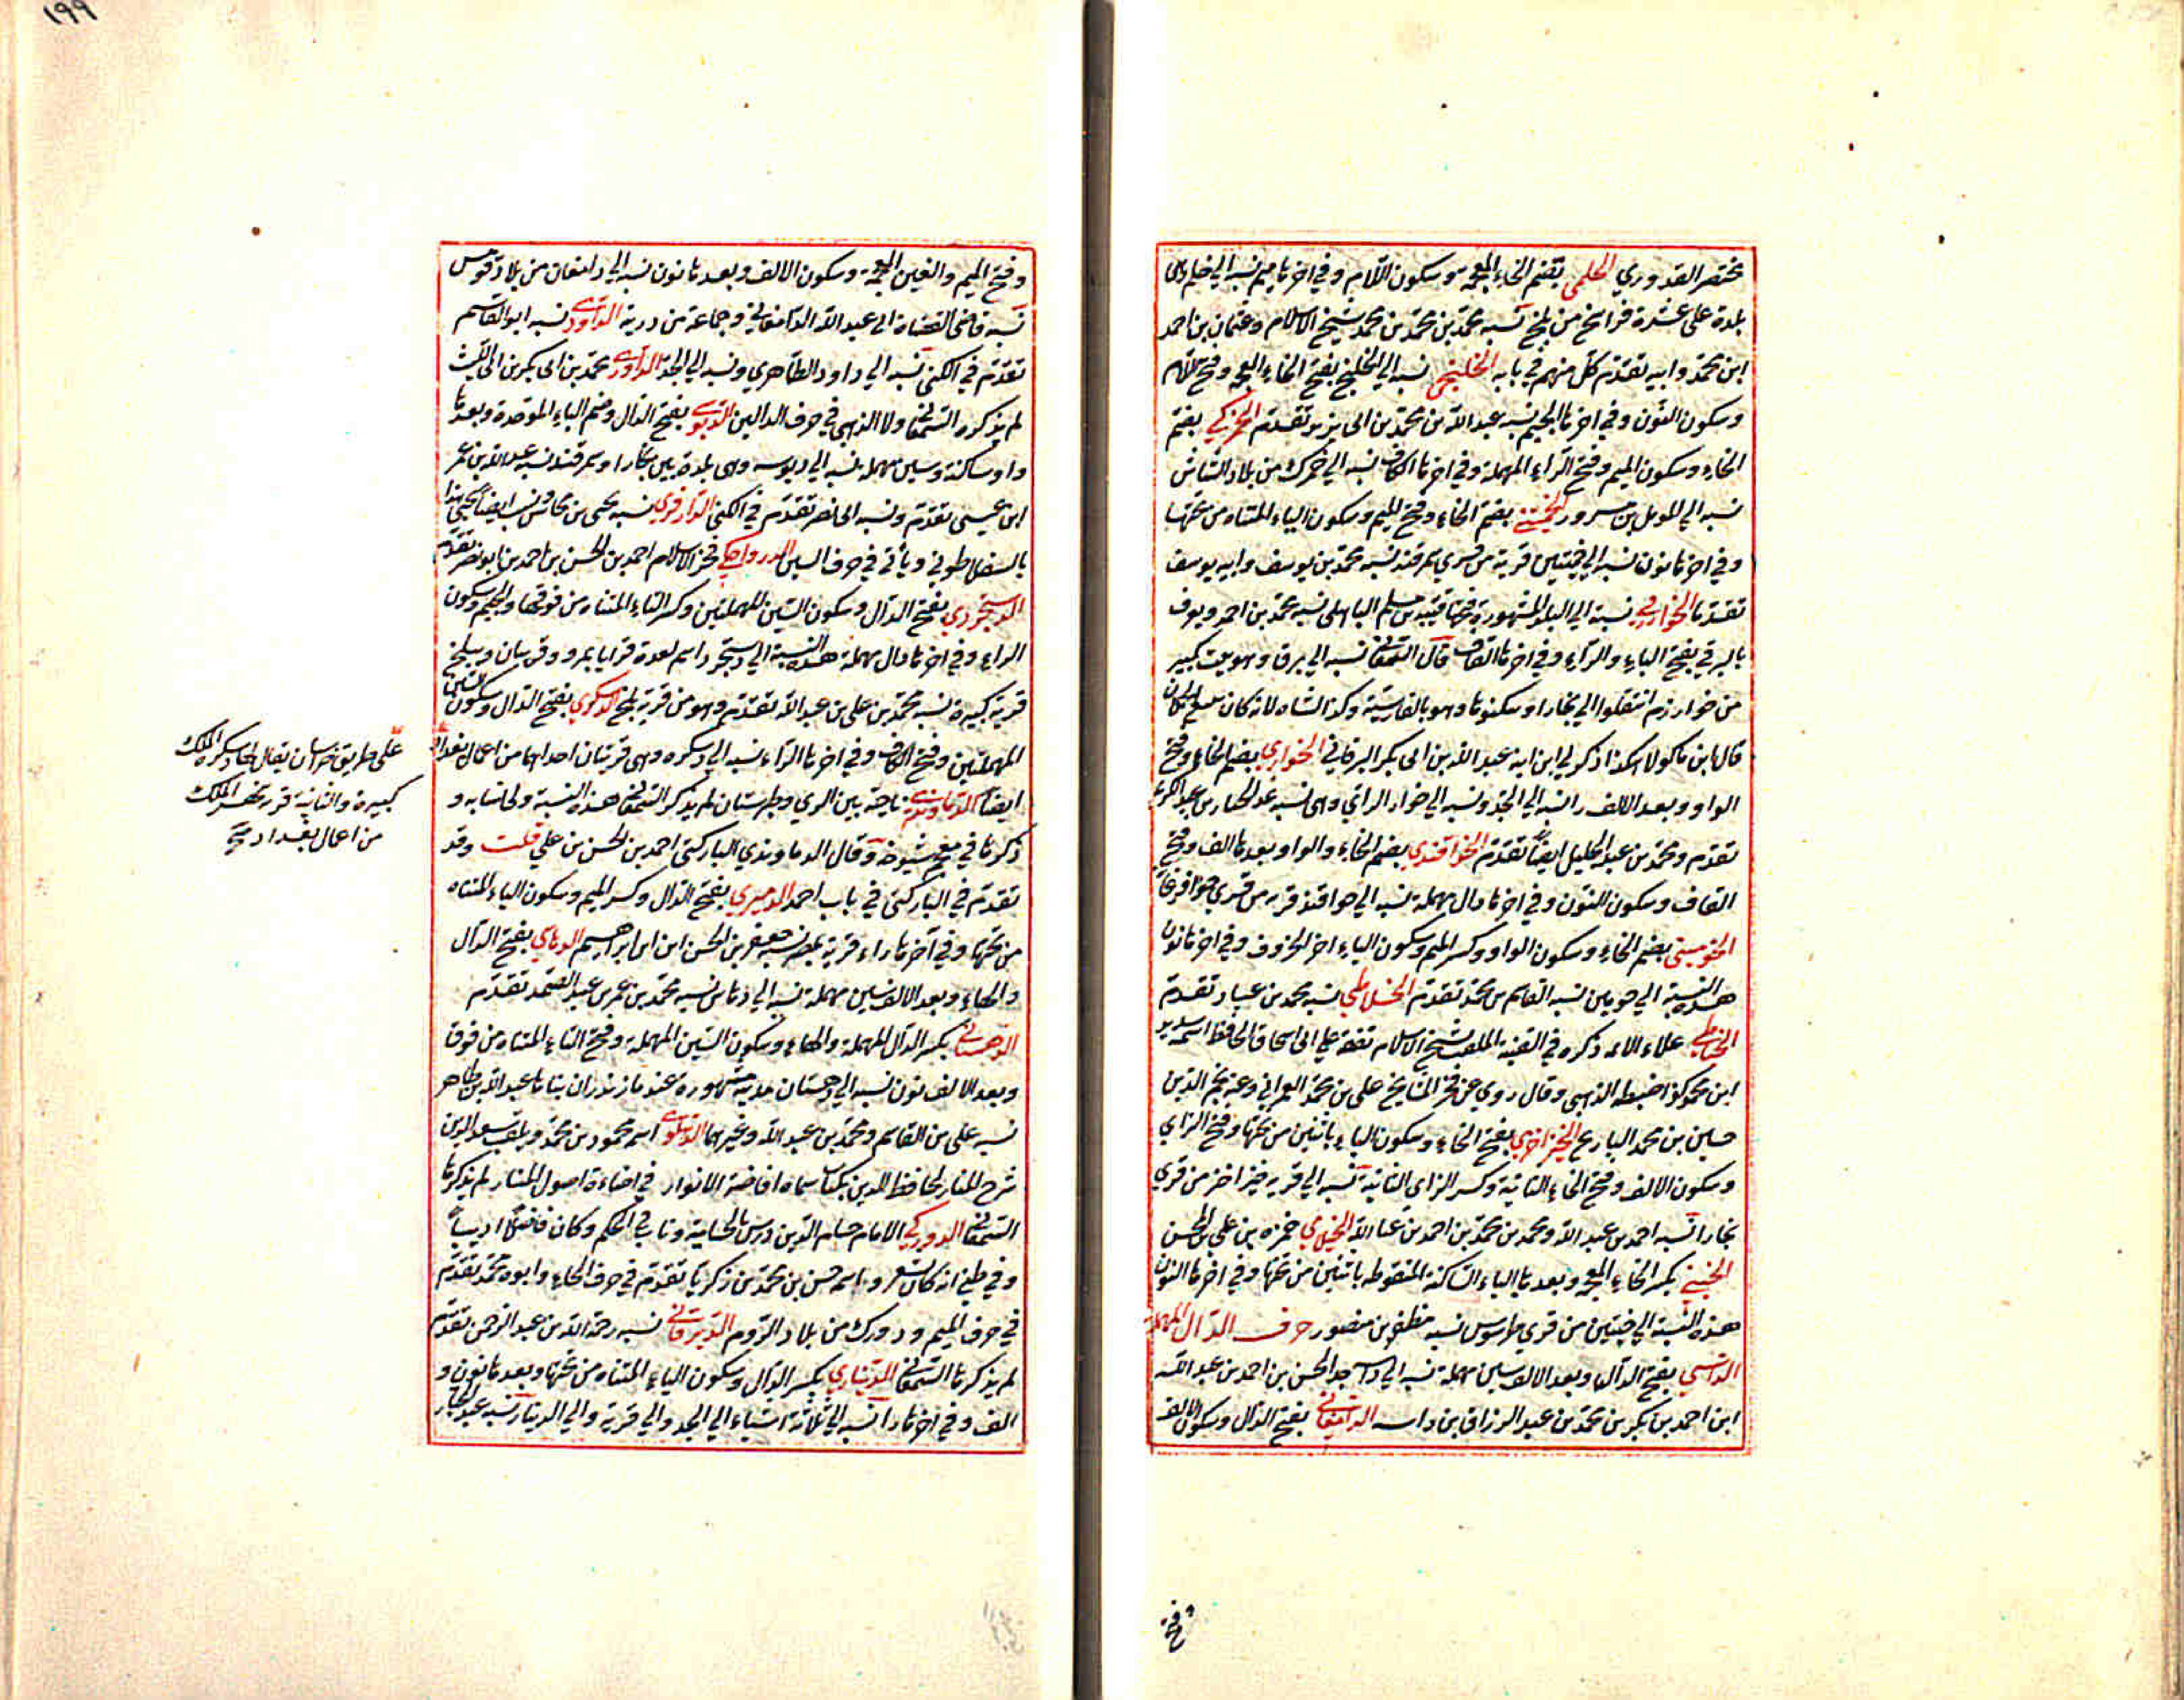 مختصر القدوري الخلمي بضم الخاء المعجمة وسكون اللام وفي اخرها ميم نسبة الي خلم وهي
بلدة على عشرة فراسخ من بلخ نسبة محمد بن محمد بن محمد شيخ الاسلام وعثمان بن احمد
ابن محمد وابيه تقدم كل منهم في بابه الخلنجي نسبة الي الخلنج بفتح الخاء المعجمة وفتح اللام
وسكون النون وفي اخرها الجيم نسبة عبد الله بن محمد بن ابي يزيد تقدم الخمركي بضم
الخاء وسكون الميم وفتح الراء المهملة وفي اخرها الكاف نسبة الي خمرك من بلاد الشاش
نسبة الي المومل بن مسرور الخميثني بضم الخاء وفتح الميم وسكون الياء المثناة من تحتها
وفي اخرها نون نسبة الي قرية من قري سمرقند نسبة محمد بن يوسف وابيه يوسف
تقدما الخوارزمي نسبة الي البلد المشهورة فتحها قتيبة بن مسلم الباهلي نسبة محمد بن احمد ويعرف
بالبرقي بفتح الباء والراء وفي اخرها القاف قال السمعاني نسبة الي برق وهو بيت كبير
من خوارزم انتقلوا الي بخارا وسكنوها وهو بالفارسية وكذا الشاه لانه كان يبيع الحملان
قال ابن ماكولا هكذا ذكر لي ابن ابنه عبد الله بن ابي بكر البرقي الخواري بضم الخاء وفتح
الواو وبعد الالف را نسبة الي الجد ونسبة الي خوار الراي وهي نسبة عبد الجبار بن عبد الكريم
تقدم ومحمد بن عبد الجليل ايضا تقدم الخواقندي بضم الخاء والواو وبعدها الف وفتح
القاف وسكون النون وفي اخرها دال مهملة نسبة الي خواقند قرية من قري فرغانة
الخوميني بضم الخاء وسكون الواو وكسر الميم وسكون الياء اخر الحروف وفي اخرها نون
هذه النسبة الي خومين نسبة القاسم بن محمد تقدم الخلاطي نسبة محمد بن عباد تقدم
الخياطي علاء الائمة ذكره في القنية الملقب شيخ الاسلام تفقه علي ابي اسحاق الحافظ اسمه سديد
ابن محمد كذا ضبطه الذهبي وقال روي عن فخر المشايخ علي بن محمد العمراني وعنه نجم الدين
حسين بن محمد البارع الخيزاخزي بفتح الخاء وسكون الياء باثنتين من تحتها وفتح الزاي
وسكون الالف وفتح الخاء الثانية وكسر الزاي الثانية نسبة الي قرية خيزاخز من قري
بخارا نسبة احمد بن عبد الله ومحمد بن محمد بن احمد بن عبد الله حمزه بن علي بن الحسن
الخيني بكسر الخاء المعجمة وبعدها الياء الساكنة المنقوطة باثنتين من تحتها وفي اخرها النون
هذه النسبة الي خينين من قري طوس نسبة مظفر بن منصور حرف الدال المهملة
الداسي بفتح الدال وبعد الالف سين مهملة نسبة الي داسه جد الحسن بن احمد بن عبد الله
ابن احمد بن بكر بن محمد بن عبد الرزاق بن داسه الدامغاني بفتح الدال وسكون الالف
وفتح
١٩٩
وفتح الميم والغين المعجمة وسكون الالف وبعدها نون نسبة الي دامغان من بلاد قومس
نسبة قاضي القضاة ابي عبد الله الدامغاني وجماعة من ذريته الداودي نسبة ابو القاسم
تقدم في الكني نسبة الي داود الظاهري ونسبة الي الجد الداوري محمد بن ابي بكر بن ابي الليث
لم يذكره السمعاني ولا الذهبي في حرف الدالين الدبوسي بفتح الدال وضم الباء الموحدة وبعدها
واو ساكنة وسين مهملة نسبة الي دبوسة وهي بلدة بين بخارا وسمرقند نسبة عبيد الله بن عمر
ابن عيسي تقدم ونسبة ابي نصر تقدم في الكني الدارقزي نسبة يحيى بن نسب ايضا يحيي هذا
وياتي في حرف السين الدرواجكي فخر الاسلام احمد بن الحسن بن احمد بن ابو نصر تقدم
الدستجردي بفتح الدال وسكون السين المهملتين وكسر التاء المثناة من فوقها والجيم وسكون
الراء وفي اخرها دال مهملة هذه النسبة الي دستجرد اسم لعدة قرايا بمرو وقريتان وببلخ
قرية كبيرة نسبة محمد بن علي بن عبد الله تقدم وهو من قرية بلخ الدسكري بفتح الدال وسكون السين
المهملتين وفتح الكاف وفي اخرها الراء نسبة الي دسكرة وهي قريتان احداهما من اعمال بغداد
ايضا الدماوندي ناحية بين الري وطبرستان لم يذكر السمعاني هذه النسبة ولا انسابه و
ذكرها في معجم شيوخه وقال الدماوندي الباركثي احمد بن الحسن بن علي قلت وقد
تقدم في الباركثي في باب احمد الدميري بفتح الدال وكسر الميم وسكون الياء المثناة
من تحتها وفي آخرها راء قرية بمصر نسبة جعفر بن الحسن ابن ابراهيم الدهاسي بفتح الدال
والهاء وبعد الالف سين مهملة نسبة الي دهاس نسبة محمد بن عمر بن عبد الصمد تقدم
الدهستاني بكسر الدال المهملة والهاء وسكون السين المهملة وفتح التاء المثناة من فوق
وبعد الالف نون نسبة الي دهستان مدينة مشهورة عند مازندران بناها عبد الله بن طاهر
نسبة علي بن القاسم ومحمد بن عبد الله وغيرهما الدهلوي اسمه محمود بن محمد ويلقب سعد الدين
شرح المنار لحافظ الدين بكتاب سماه افاضة الانوار في اضاءة اصول المنار لم يذكرها
السمعاني الدوركي الامام حسام الدين درس بالحسامية وناب في الحكم وكان فاضلا اديبا
وفي ظني انه كان يشعر واسمه حسن بن محمد بن زكريا تقدم في حرف الحاء وابوه محمد تقدم
في حرف الميم ودورك من بلاد الروم الديرقاني نسبة رحمة الله بن عبد الرحمن تقدم
لم يذكرها السمعاني الديناري بكسر الدال وسكون الياء المثناة من تحتها وبعدها نون و
الف وفي اخرها را نسبة الي ثلاثة اشياء الي الجد والي قرية والي الدينار نسبة عبد الجبار
علي طريق خراسان يقال لها دسكرة الملك
كبيرة والثانية قرية بنهر الملك
من اعمال بغداد صح